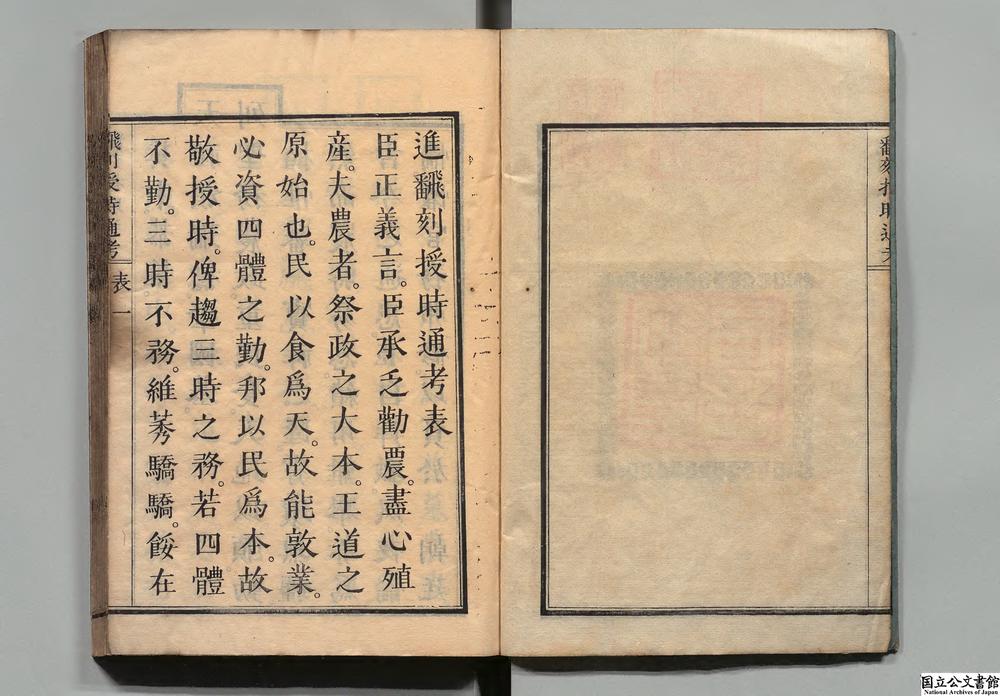 進飜刻授時通考表
臣正義言。臣承乏勸農。盡心殖
產。夫農者。祭政之大本。王道之
原始也。民以食爲天。故能敦業。
必資四體之勤。邦以民爲本。故
敬授時。俾趨三時之務。若四體
不勤。三時不務。維莠驕驕。餒在
飜刻授時通考 表 一
国立公文書館
National Archives of Japan